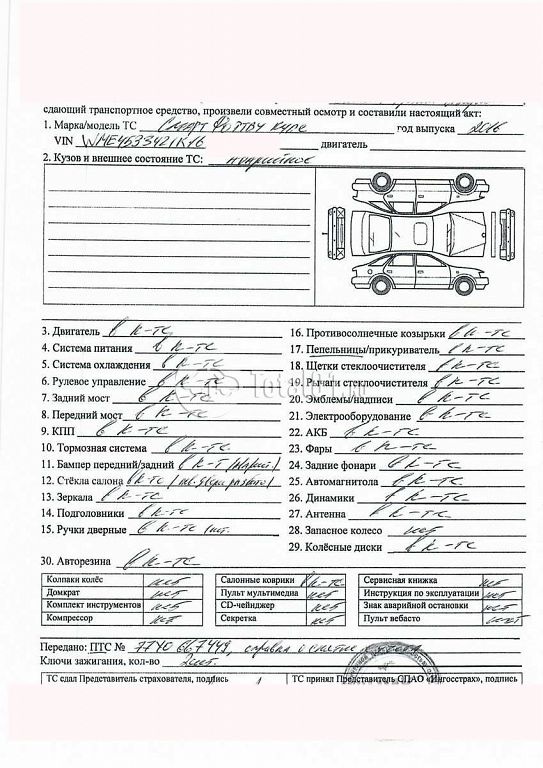 сдающий транспортное средство, произвели совместный осмотр и составили настоящий акт:
1. Марка/модель ТС Смарт год выпуска 2016
VIN WME4533421K16 двигатель
2. Кузов и внешнее состояние ТС:
3. Двигатель в к-те
4. Система питания в к-те
5. Система охлаждения в к-те
6. Рулевое управление в к-те
7. Задний мост в к-те
8. Передний мост в к-те
9. КПП в к-те
10. Тормозная система в к-те
11. Бампер передний/задний в к-т
12. Стёкла салона в к-те
13. Зеркала в к-те
14. Подголовники в к-те
15. Ручки дверные в к-те
16. Противосолнечные козырьки в к-те
17. Пепельницы/прикуриватель в к-те
18. Щетки стеклоочистителя в к-те
19. Рычаги стеклоочистителя в к-те
20. Эмблемы/надписи в к-те
21. Электрооборудование в к-те
22. АКБ в к-те
23. Фары в к-те
24. Задние фонари в к-те
25. Автомагнитола в к-те
26. Динамики в к-те
27. Антенна в к-те
28. Запасное колесо нет
29. Колёсные диски в к-те
30. Авторезина в к-те
Колпаки колёс нет
Домкрат нет
Комплект инструментов нет
Компрессор нет
Салонные коврики в к-те
Пульт мультимедиа нет
CD-чейнджер нет
Секретка нет
Сервисная книжка нет
Инструкция по эксплуатации нет
Знак аварийной остановки нет
Пульт вебасто нет
Передано: ПТС № 77УО 667449, справка о снятии с учета
Ключи зажигания, кол-во 2шт.
ТС сдал Представитель страхователя, подпись
ТС принял Представитель СПАО «Ингосстрах», подпись